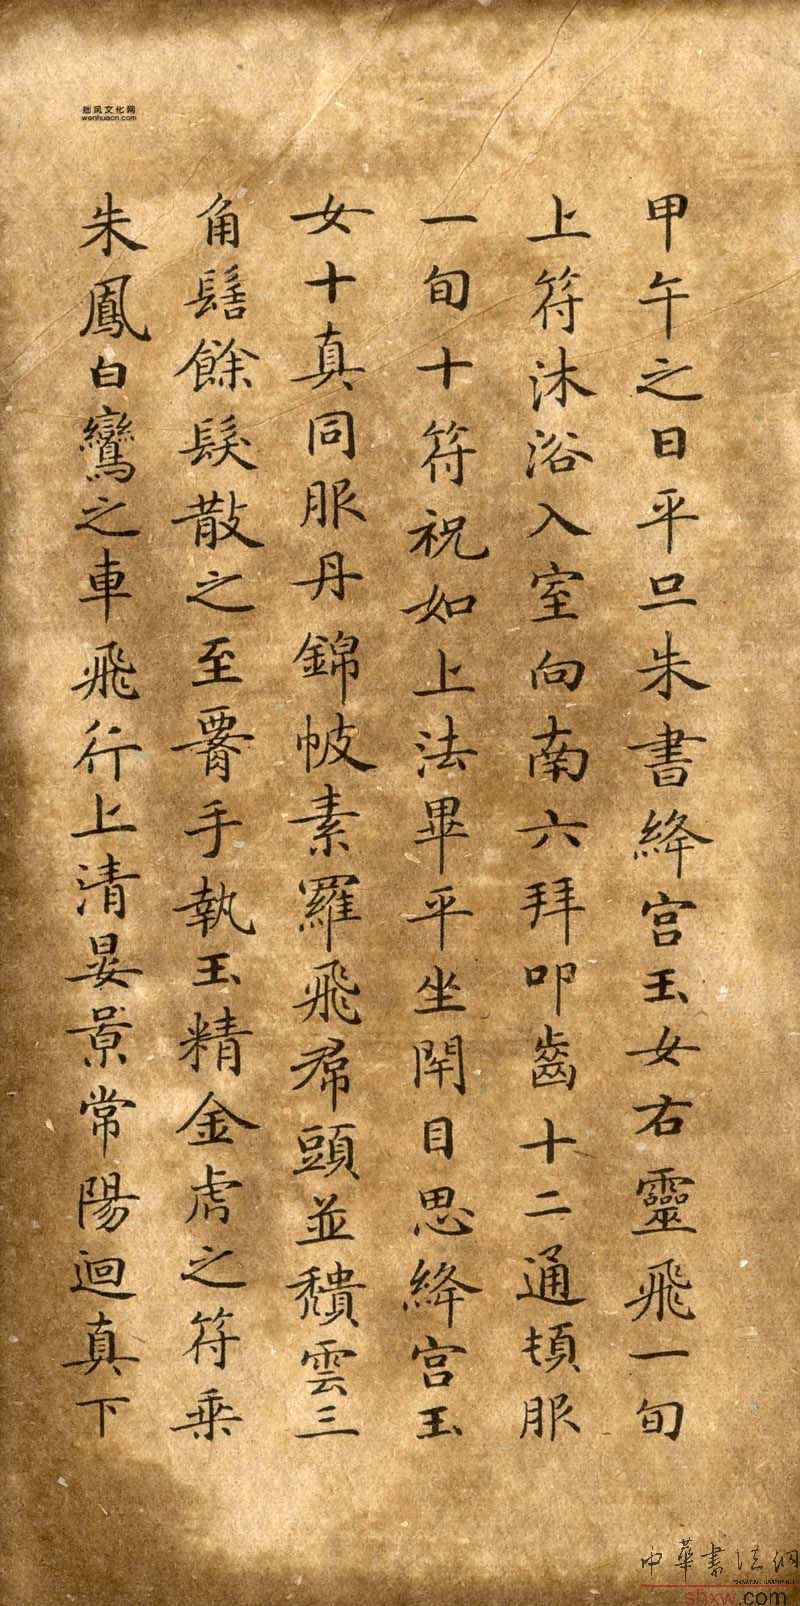 甲午之日平旦朱書絳宮玉女右靈飛一旬
上符沐浴入室向南六拜叩齒十二通頓服
一旬十符祝如上法畢平坐閇目思絳宮玉
女十真同服丹錦帔素羅飛帬頭並頹雲三
角髻餘髮散之至署手執玉精金虎之符乘
朱鳳白鸞之車飛行上清晏景常陽迴真下
拙风文化网
wenhuacn.com
中華書法網
shxw.com